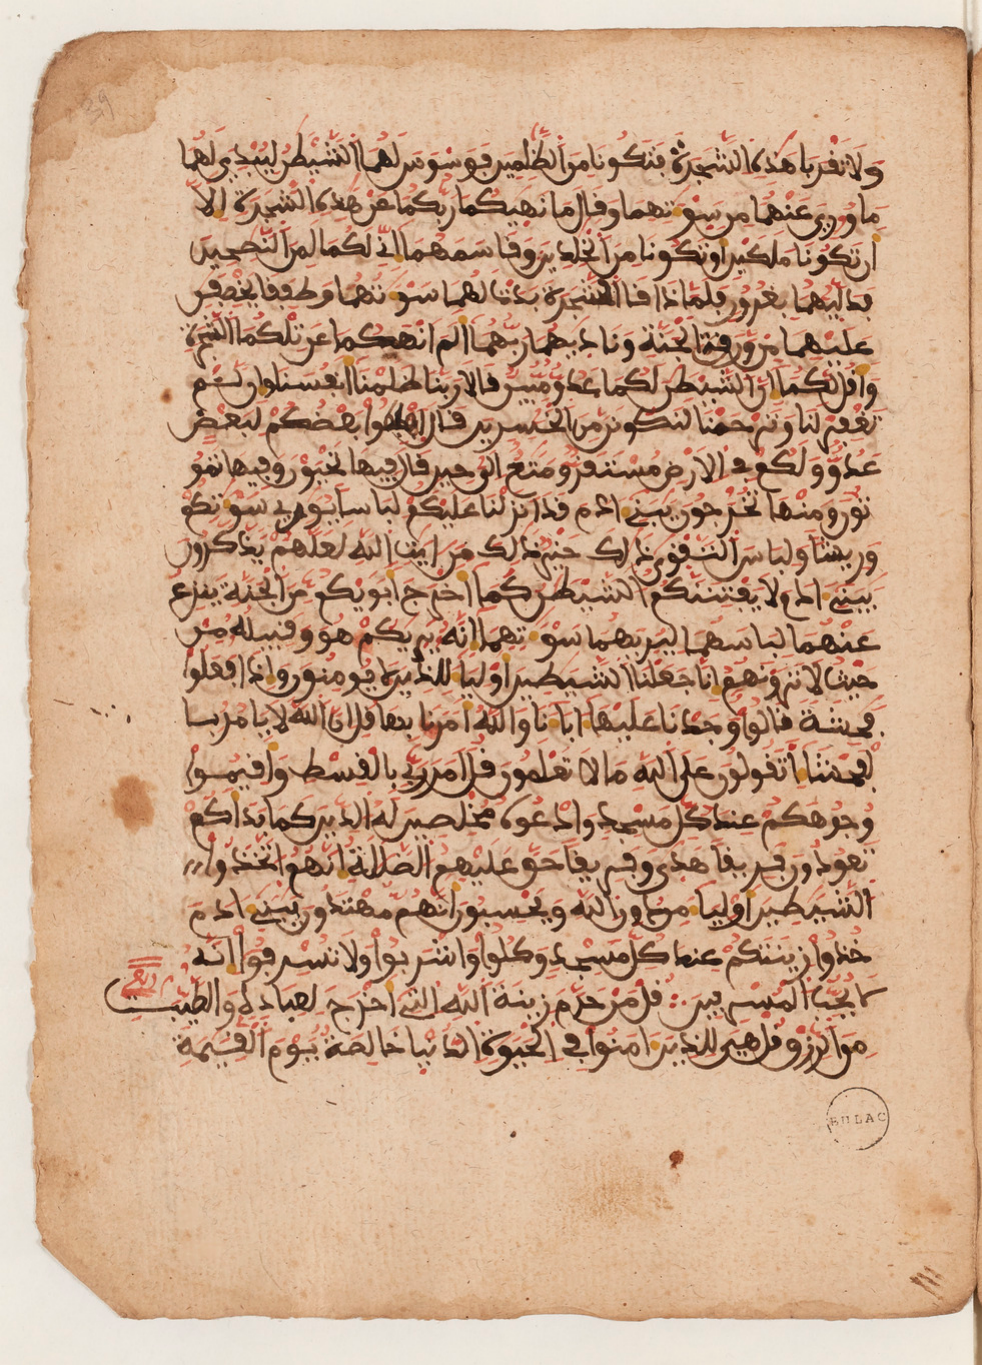 ولا تقربا هذه الشجرة فتكونا من الظلمين فوسوس لهما الشيطن ليبدي لهما
ما وري عنهما من سوتهما وقال ما نهيكما ربكما عن هذه الشجرة الا
ان تكونا ملكين او تكونا من الخلدين وقاسمهما اني لكما لمن النصحين
فدليهما بغرور فلما ذاقا الشجرة بدت لهما سوتهما وطفقا يخصفن
عليهما من ورق الجنة وناديهما ربهما الم انهكما عن تلكما الشجرة
واقل لكما ان الشيطن لكما عدو مبين قالا ربنا ظلمنا انفسنا وان لم
تغفر لنا وترحمنا لنكونن من الخسرين قال اهبطوا بعضكم لبعض
عدو ولكم في الارض مستقر ومتع الى حين قال فيها تحيون وفيها تمو
تون ومنها تخرجون يبني ادم قد انزلنا عليكم لباسا يوري سوتكم
وريشا ولباس التقوى ذلك خير ذلك من ايت الله لعلهم يذكرون
يبني ادم لا يفتننكم الشيطن كما اخرج ابويكم من الجنة ينزع
عنهما لباسهما ليريهما سوتهما انه يريكم هو وقبيله من
حيث لا ترونهم انا جعلنا الشيطين اوليا للذين لا يومنون واذا فعلوا
فحشة قالوا وجدنا عليها ابانا والله امرنا بها قل ان الله لا يامر با
لفحشا اتقولون على الله ما لا تعلمون قل امر ربي بالقسط واقيموا
وجوهكم عند كل مسجد وادعوه مخلصين له الدين كما بداكم
تعودون فريقا هدى وفريقا حق عليهم الضللة انهم اتخذوا
الشيطين اوليا من دون الله ويحسبون انهم مهتدون يبني ادم
خذوا زينتكم عند كل مسجد وكلوا واشربوا ولا تسرفوا انه
لا يحب المسرفين قل من حرم زينة الله التي اخرج لعباده والطيبت
من الرزق قل هي للذين امنوا في الحيوة الدنيا خالصة يوم القيمة
BULAC